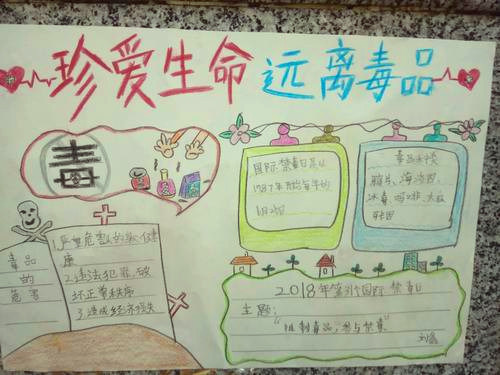 珍爱生命 远离毒品
毒
国际禁毒日是从
1987年开始每年的
6月26日
毒品种类
鸦片、海洛因、
冰毒、吗啡、大麻
毒品
的
危害
1.严重危害人的身心健
康
2.违法犯罪,破
坏正常秩序
3.造成经济损失
2018年第31个国际禁毒日
主题:
"抵制毒品,参与禁毒"